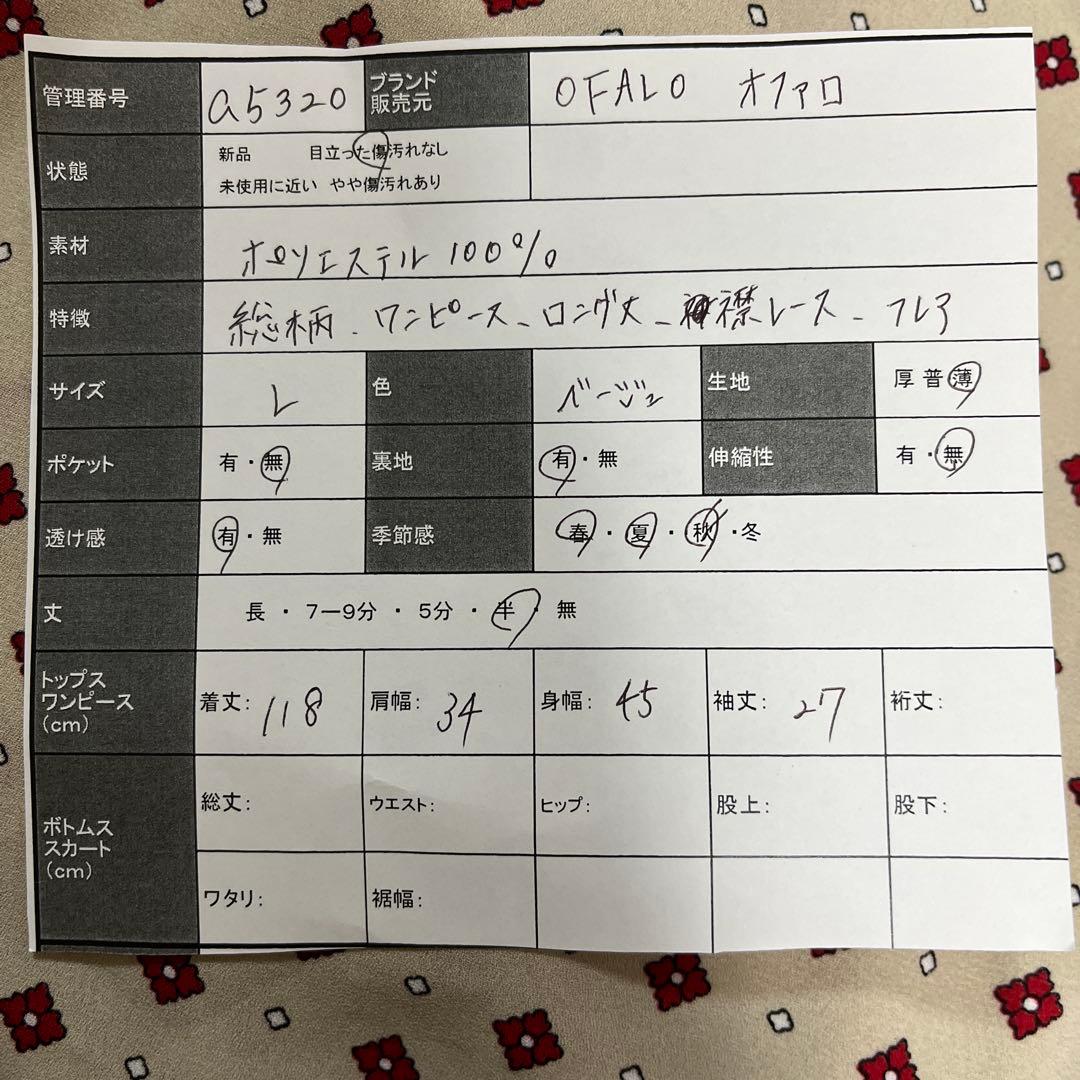 管理番号 a5320 ブランド販売元 OFALO オファロ
状態 新品 目立った傷汚れなし
未使用に近い やや傷汚れあり
素材 ポリエステル 100%
特徴 総柄、ワンピース、ロング丈、襟レース、フレア
サイズ L 色 ベージュ 生地 厚 普 薄
ポケット 有・無 裏地 有・無 伸縮性 有・無
透け感 有・無 季節感 春・夏・秋・冬
丈 長・7ー9分・5分・半・無
トップス
ワンピース
(cm)
着丈: 118 肩幅: 34 身幅: 45 袖丈: 27 裄丈:
ボトムス
スカート
(cm)
総丈: ウエスト: ヒップ: 股上: 股下:
ワタリ: 裾幅: